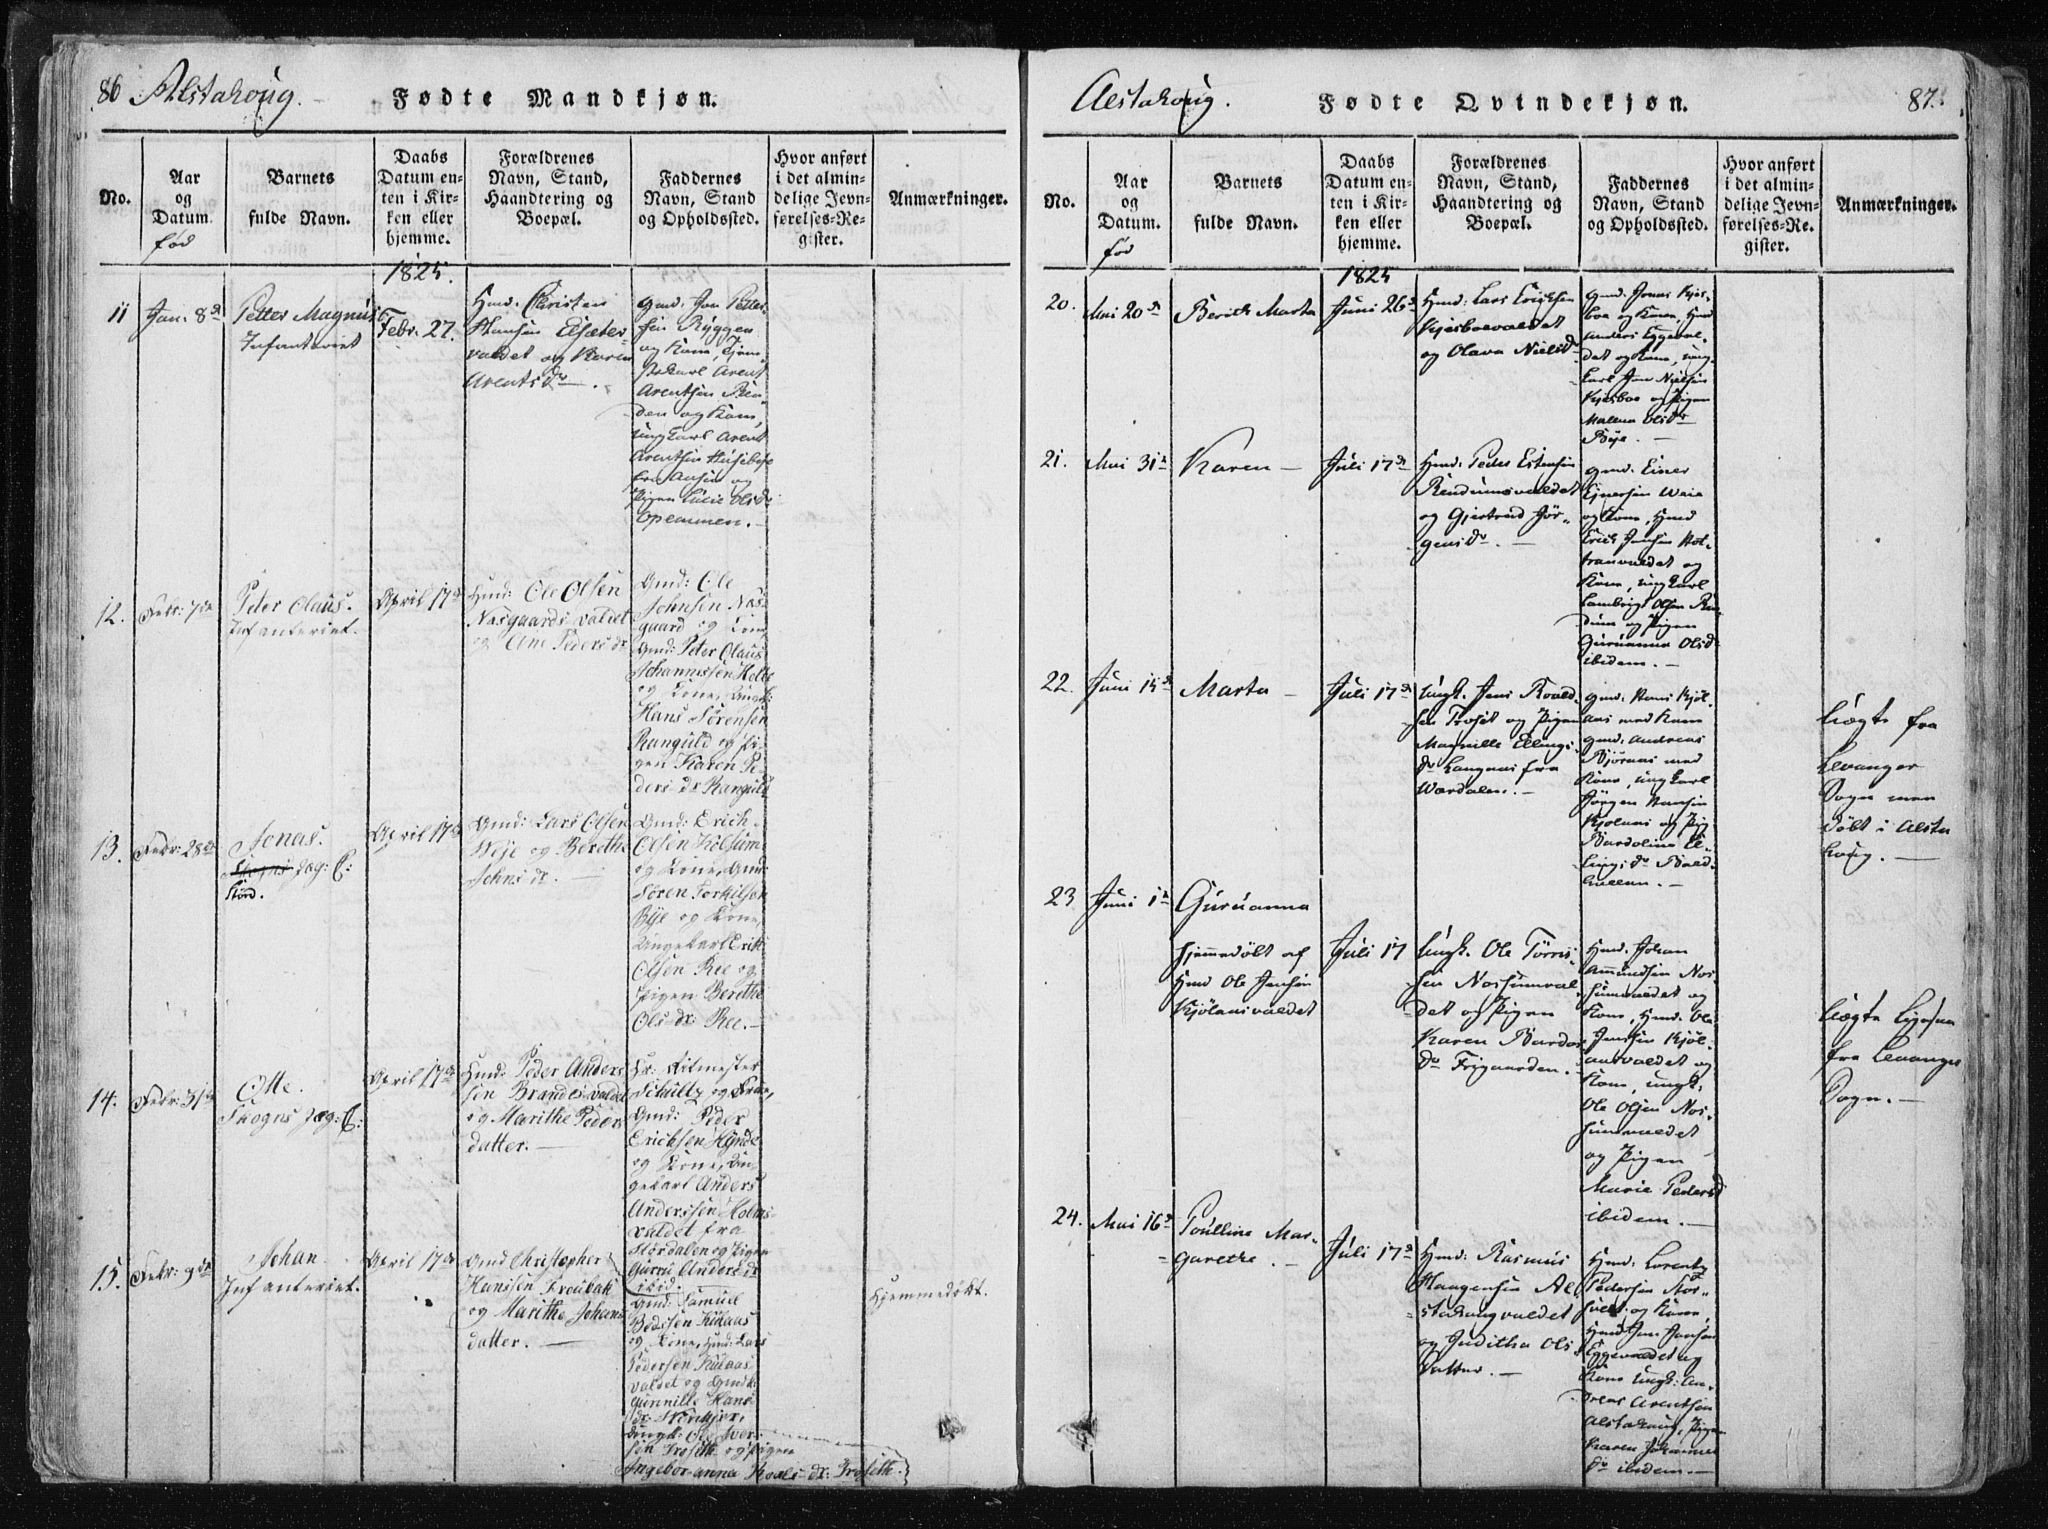 86 Alstahoug. Fødte Mandkjøn.
No.
Aar
og
Datum.
fød
Barnets
fulde Navn.
Daabs
Datum en-
ten i Kir-
ken eller
hjemme.
Forældrenes
Navn, Stand,
Haandtering og
Boepæl.
Faddernes
Navn, Stand
og Opholdssted.
Hvor anført
i det almin-
delige Jevn-
førelses-Re-
gister.
Anmærkninger.
1825.
11
Jan: 8de
Petter Magnus
Infanteriet
Febr. 27.
Hmd: Christen
Hansen Elsæter-
valdet og Karen
Arentsdr.
Gmd: Jon Petter-
sen Ryggen
og Kone,
Arent
Arentsen
og Kone,
Ungkarl Arent
Arentsen Husebye
og
Pigen Lucie Olsdr
Opemmen.
12.
Febr: 7de
Peter Olaus.
Infanteriet.
April 17de
Hmd: Ole Olsen
Nasgaards valdet
og Ane Peders dr
Gmd: Ole
Johnsen Nas-
gaard og Kone,
Gmd: Peter Olaus
Johannessen Holte
og Kone, Ungk:
Hans Sörensen
Ranguld og Pi-
gen Karen Pe-
ders dr Ranguld
13.
Febr: 28de
Jonas.
Skogns Jæg: C:
Størd.
April 17de
Gmd: Lars Olsen
Weje og Berethe
Johns dr.
Gmd: Erich
Olsen Kolsum
og Kone, Gmd:
Sören Torkilsen
Bye og Kone,
Ungekarl Erik
Olsen Ree og
Pigen Berethe
Ols dr Ree.
14.
Febr: 31te
Otte.
Skogns Jæg: C:
April 17de
Hmd: Peder Anders
sen Brandes valdet
og Marithe Peders
datter.
Hr. Ritmester
Schultz og Frue,
Gmd: Peder
Erichsen Hynde
og Kone, Un-
gekarl Anders
Anderssen Holms-
valdet fra
Stördalen og Pigen
Gurru Anders dr
ibid.
15.
Febr: 9de
Johan.
Infanteriet.
April 17de
Gmd Christopher
Hanssen Troubak
og Marithe Johans
datter.
Gmd: Samuel
og Kone, Hmd: Lars
Pedersen
valdet og Gmdk:
Gunnille Hans
dr
Ungk: Ole Iver-
sen Troseth og Pigen
Ingebor-anna Roals-dr: Troseth.
Hjemmedøbt.
Alstahoug. Fødte Qvindekjøn. 87.
No.
Aar
og
Datum.
fød
Barnets
fulde Navn.
Daabs
Datum en-
ten i Kir-
ken eller
hjemme.
Forældrenes
Navn, Stand,
Haandtering og
Boepæl.
Faddernes
Navn, Stand
og Opholdssted.
Hvor anført
i det almin-
delige Jevn-
førelses-Re-
gister.
Anmærkninger.
1825
20.
Mai 20de
Berith Marta
Juni 26de
Hmd: Lars Erichsen
Kjesboevaldet
og Olava Nielsdr
Gmd: Jonas Kjes-
boe og Kone, Hmd
Anders Eggeval-
det og Kone, Ung-
karl Jon Nielsen
Kjesboe og Pigen
Malena Olsdr
Bye.
21.
Mai 31te
Karen
Juli 17de
Hmd: Peder Estensen
Rendumsvaldet
og Gjertrud Jör-
gensdr.
Gmd: Einer
Ejnersen Weie
og Kone, Hmd
Erich Jensen Hol-
tranvaldet og
Kone, Ungkarl
Lambrigt Olsen Ren-
dum og Pigen
Guruanna Olsdr
ibidem.
22.
Juni 15de
Marta
Juli 17de
Ungk. Jens Roald-
sen Troset og Pigen
Marnille Ellings
dr Langnas fra
Wærdalen.
Gmd: Hans Kjöl-
aas med Kone
Gmd: Andreas
Björnas med
Kone, Ungkarl
Jörgen Hansen
Kjölaas og Pig
Bardoline El-
lingsdr
Uægte fra
Levanger
Sogn men
døbt i Alsta
houg.
23
Juni 1te
Guruanna
Hjemmedøbt af
Hmd Ole Jensen
Kjölaasvaldet
Juli 17
Ungk. Ole Törris-
sen Nossumval
det og Pigen
Karen Bardos
dr Frigaarden.
Hmd: Johan
Ammundsen Nos-
sumvaldet og
Kone, Hmd. Ole
Jensen Kjöl-
aasvaldet og
Kone, Ungk:
Ole Olsen Nos-
sumvaldet
og Pigen
Marie Pedersd
ibidem.
Uægte
fra Levanger
Sogn.
24.
Mai 16de
Poulline Mar-
garethe.
Juli 17de
Hmd: Rasmus
Haagensen Al-
stahougvaldet
og Juditha Ols
datter.
Hmd: Lorentz
Pedersen
og Kone,
Hmd Jon Jonsen
Eggevaldet og
Kone Ungk: An-
dreas Arentsen
Alstahoug, Pigen
Karen Johannes
dr ibidem.